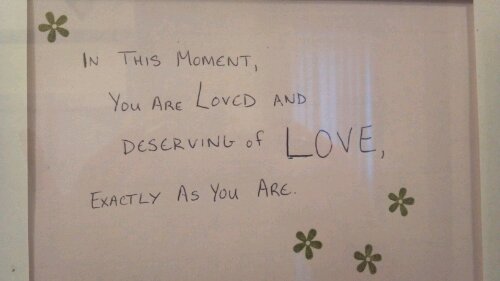 In This Moment,
You Are Loved and
deserving of LOVE,
Exactly As You Are.